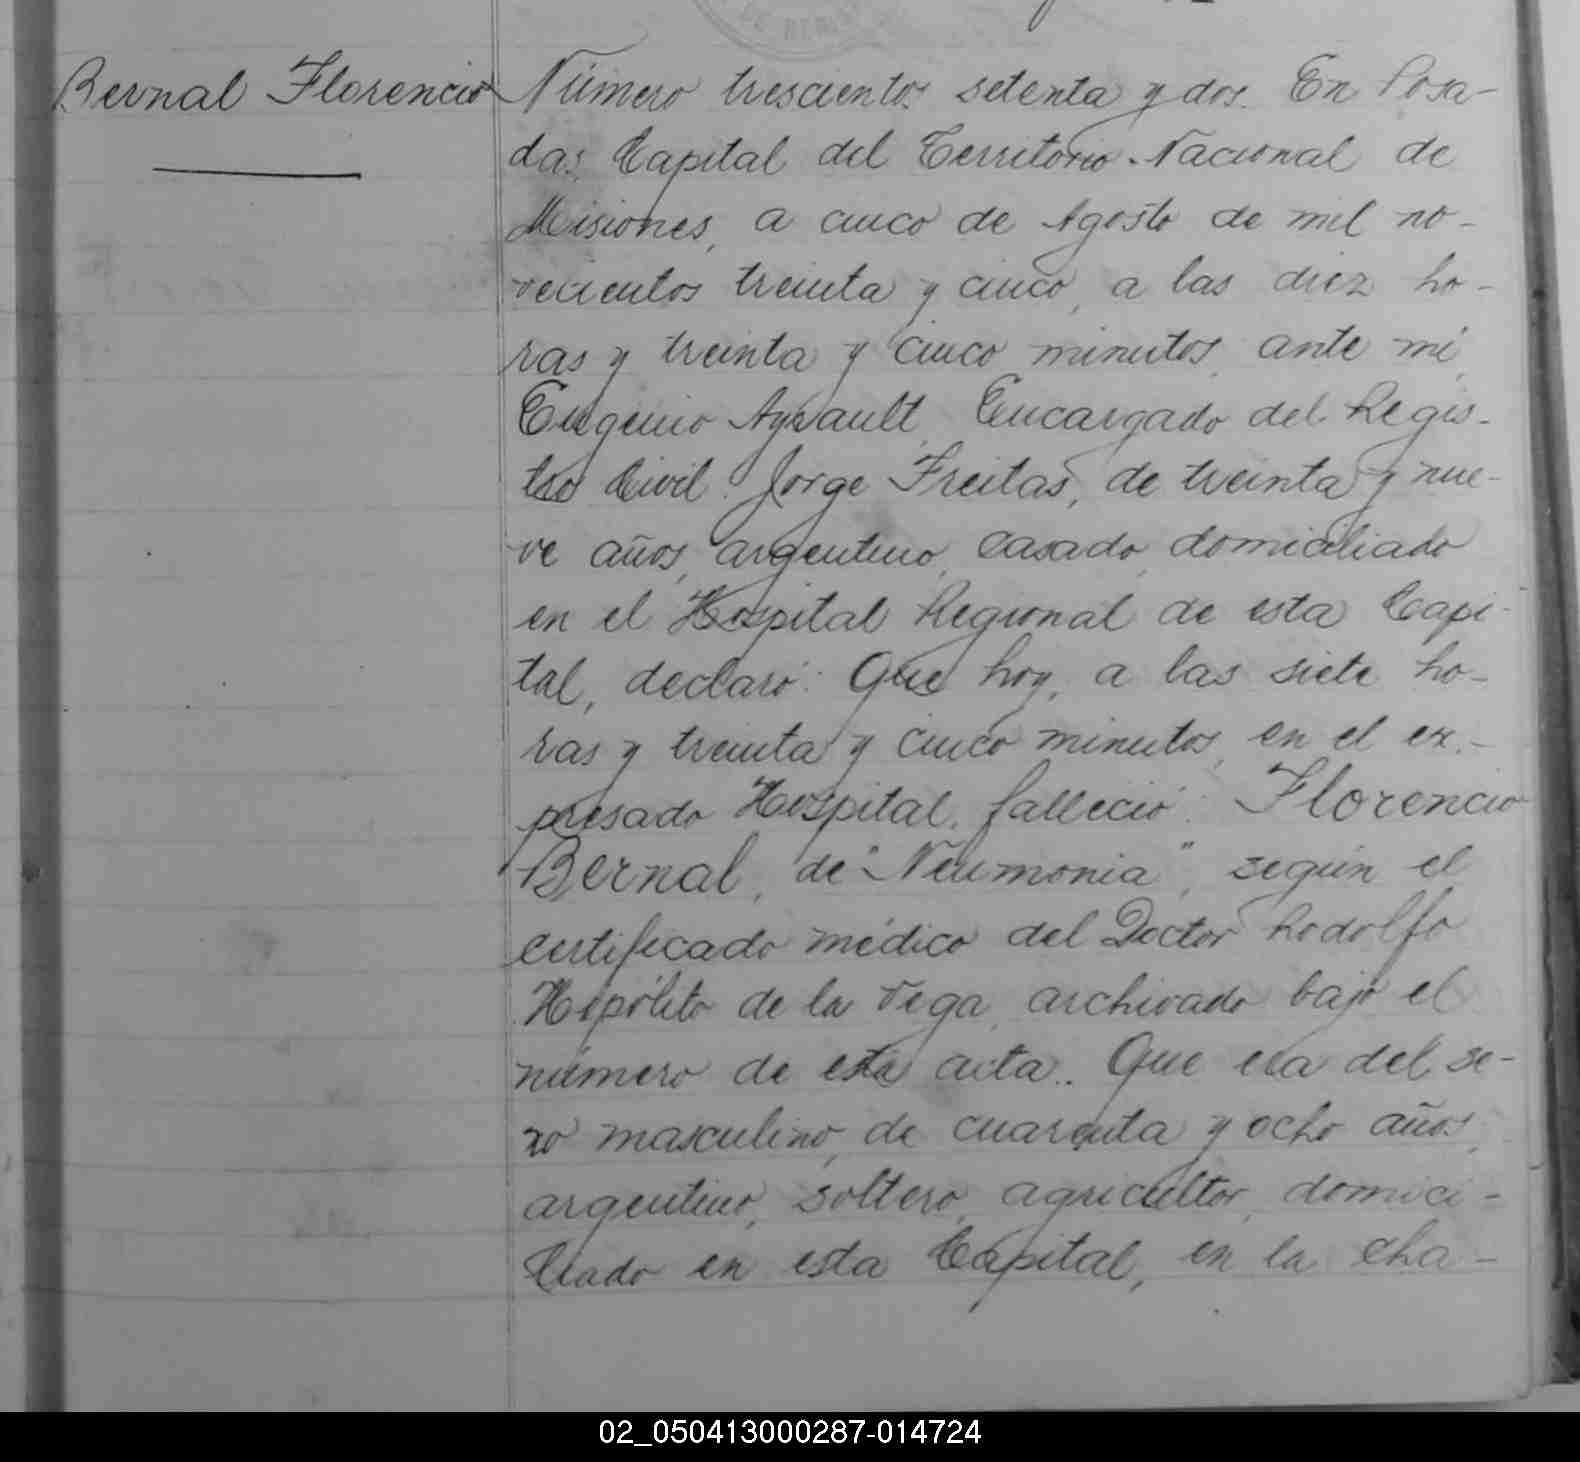 Bernal Florencio
Número trescientos setenta y dos. En Posa-
das, Capital del Territorio Nacional de
Misiones, a cinco de Agosto de mil no-
vecientos treinta y cinco, a las diez ho-
ras y treinta y cinco minutos, ante mi,
Eugenio Ayrault, Encargado del Regis-
tro Civil. Jorge Freitas, de treinta y nue-
ve años, argentino, casado, domiciliado
en el Hospital Regional de esta Capi-
tal, declaró: Que hoy, a las siete ho-
ras y treinta y cinco minutos, en el ex-
presado Hospital, falleció: Florencio
Bernal, de "Neumonia", según el
certificado médico del Doctor Rodolfo
Hipólito de la Vega, archivado bajo el
número de esta acta.. Que era del se-
xo masculino, de cuarenta y ocho años,
argentino, soltero, agricultor, domici-
liado en esta Capital, en la cha-
02_050413000287-014724